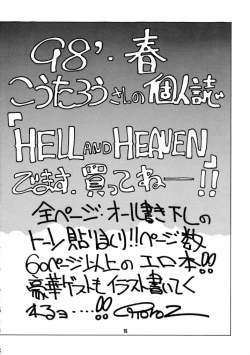 98'・春
こうたろうさんの個人誌
『HELL AND HEAVEN』
でます.買ってねー!!
全ページ:オール書き下しの
トーン貼りまくり!!ページ数
60ページ以上のエロ本!!
豪華ゲストもイラスト書いてく
れるョ....!!